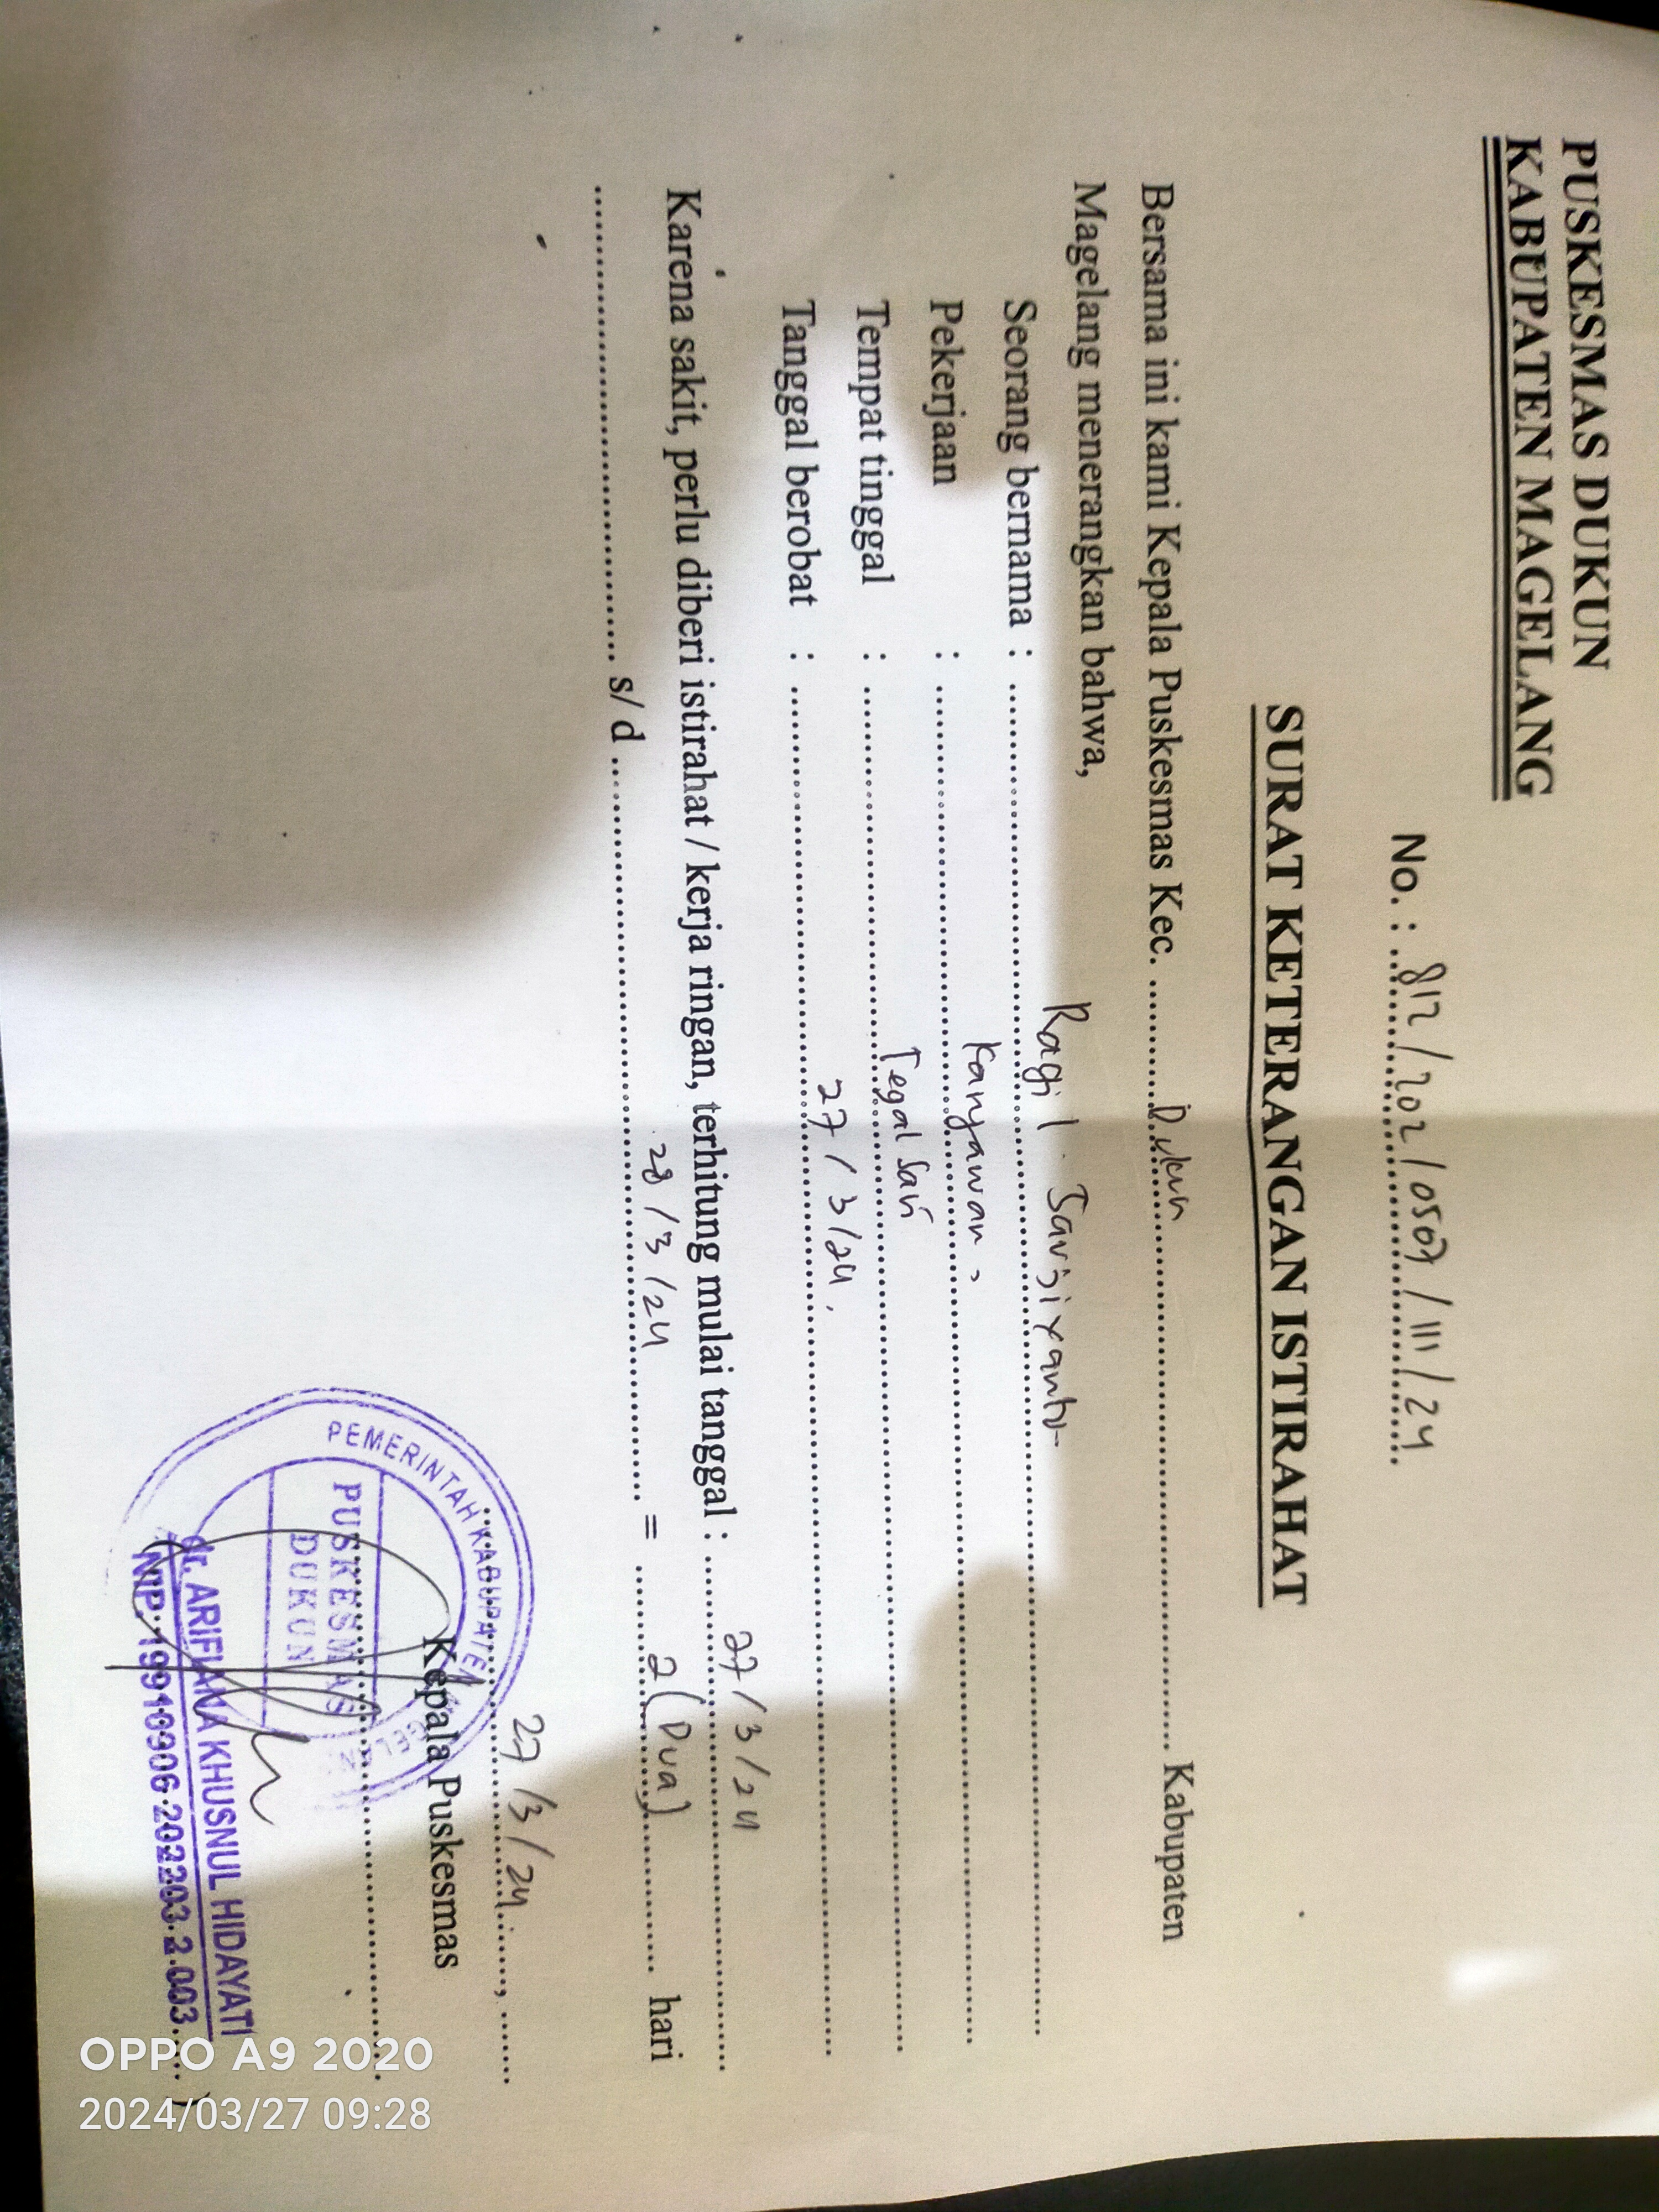 PUSKESMAS DUKUN
KABUPATEN MAGELANG
No. : 812 / 202 / 0507 / III / 24
SURAT KETERANGAN ISTIRAHAT
Bersama ini kami Kepala Puskesmas Kec. Dukun Kabupaten
Magelang menerangkan bahwa,
Seorang bernama : Ragil
Pekerjaan : Karyawan
Tempat tinggal : Tegal Sari
Tanggal berobat : 27 / 3 / 24
Karena sakit, perlu diberi istirahat / kerja ringan, terhitung mulai tanggal : 27 / 3 / 24
s/ d 28 / 3 / 24 = 2 ( Dua ) hari
27 / 3 / 24
Kepala Puskesmas
PEMERINTAH KABUPATEN MAGELANG
PUSKESMAS
DUKUN
dr. ARIFIANA KHUSNUL HIDAYATI
NIP. 19910906 202203 2 003
OPPO A9 2020
2024/03/27 09:28